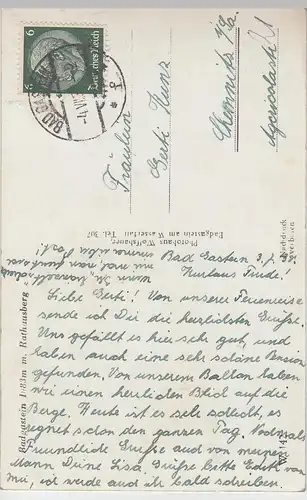 6
Deutsches Reich
BAD GASTEIN
Fräulein
Gerti Kunz
Chemnitz i/Sa.
Agricolastr. 21
Photohaus Wolfsbauer,
Badgastein am Wasserfall
Tel. 307
Badgastein 1083m m. Rathausberg
Bad Gastein 3.7.
Kurhaus
Liebe Gerti! Von unserer Ferienreise
sende ich Dir die herzlichsten Grüße.
Uns gefällt es hier sehr gut, und
haben auch eine sehr schöne Pension
gefunden. Von unserem Balkon haben
wir einen herrlichen Blick auf die
Berge. Heute ist es sehr schlecht, es
regnet schon den ganzen Tag. Nochmals
Freundliche Grüße auch von meinem
Mann Deine Lisa. Grüße bitte Edith von
mir, ich werde auch ihr bald schreiben.